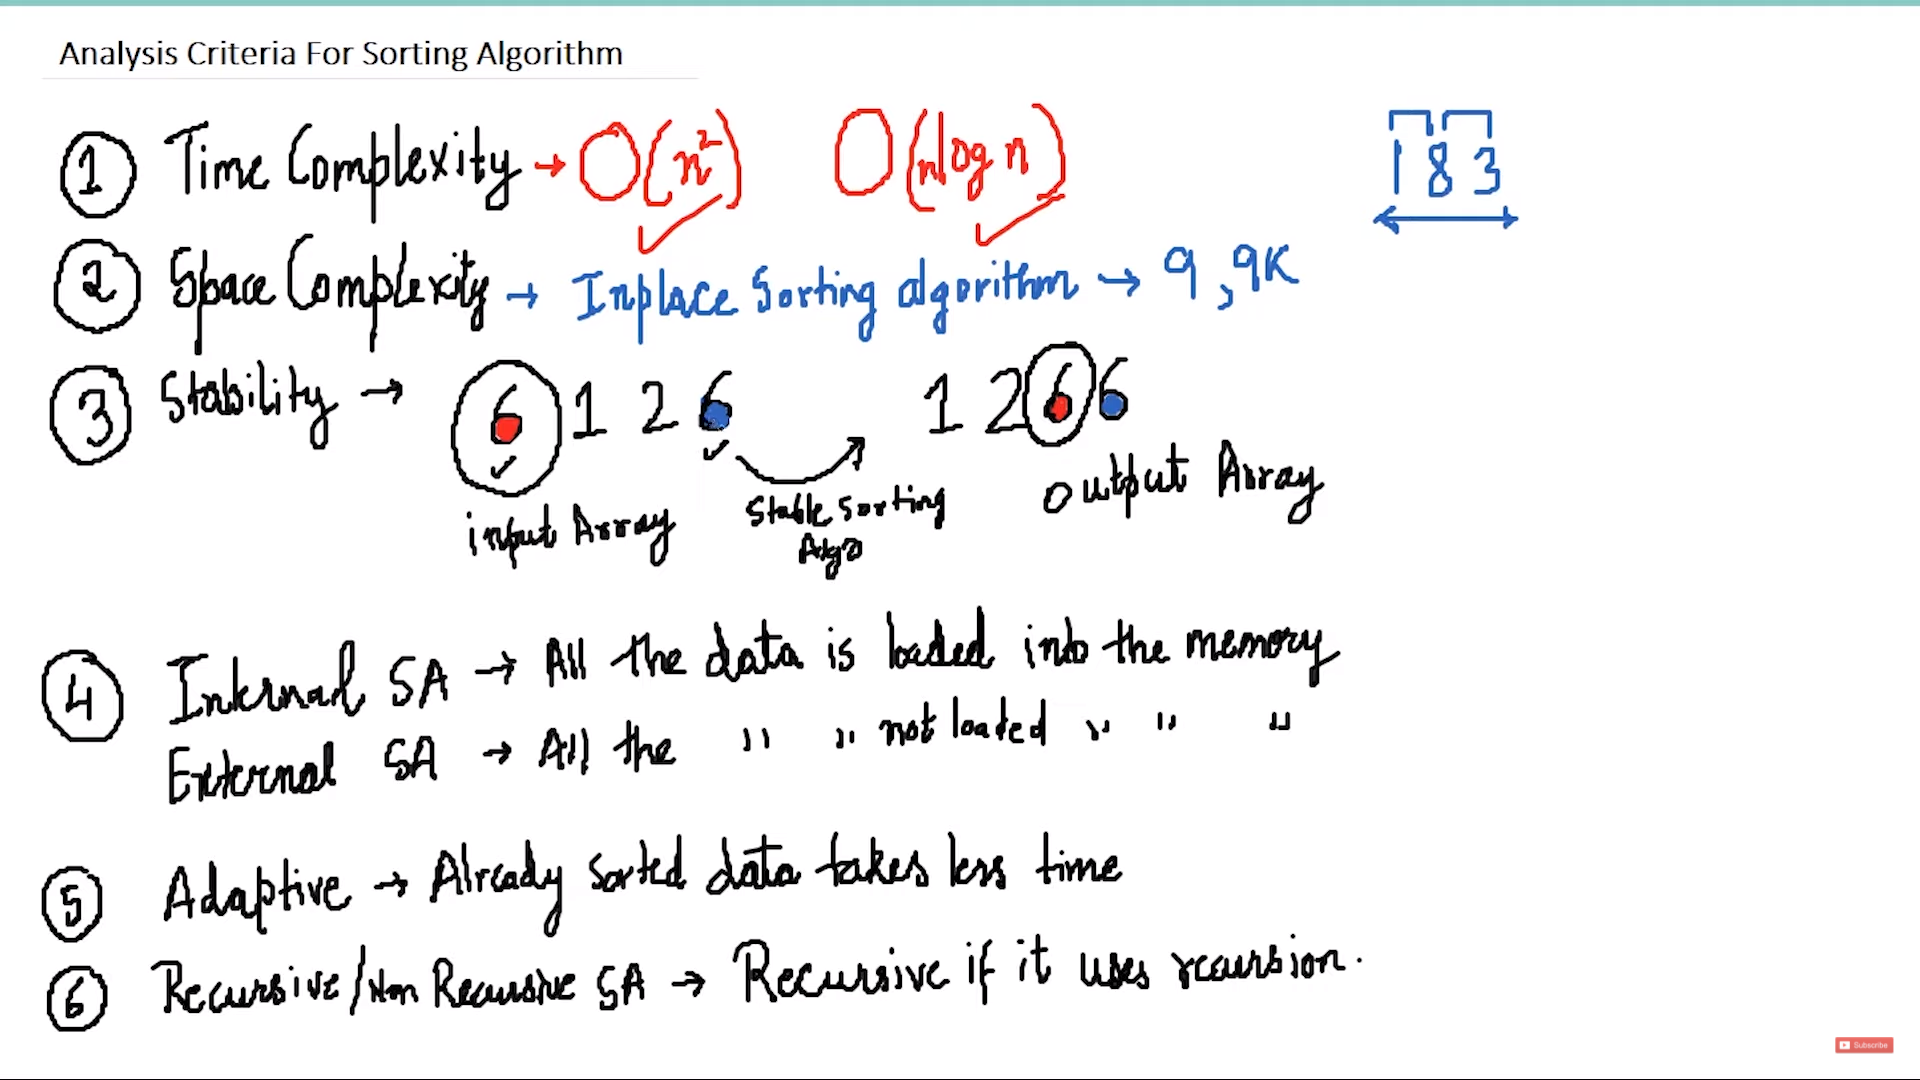 Analysis Criteria For Sorting Algorithm
① Time Complexity → O(n²) O(nlog n)
1 8 3
② Space Complexity → Inplace Sorting algorithm → 9, 9K
③ Stability → 6 1 2 6 1 2 6 6
Stable Sorting Algo
input Array
output Array
④ Internal SA → All the data is loaded into the memory
External SA → All the " " not loaded " " "
⑤ Adaptive → Already sorted data takes less time
⑥ Recursive/Non Recursive SA → Recursive if it uses recursion.
Subscribe